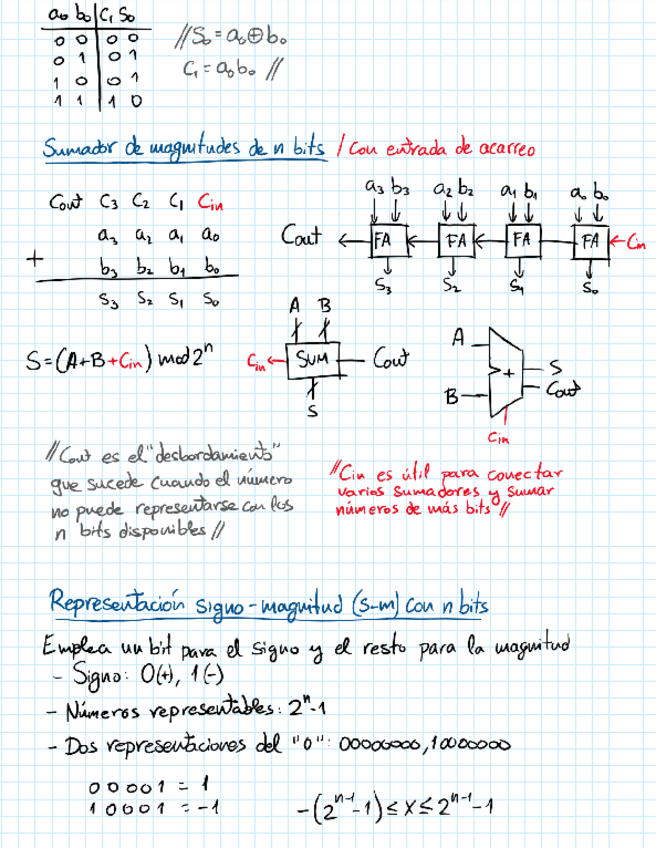 a₀ b₀ | C₁ S₀
0 0 | 0 0
0 1 | 0 1
1 0 | 0 1
1 1 | 1 0
//S₀ = a₀⊕b₀
C₁ = a₀b₀ //
Sumador de magnitudes de n bits / Con entrada de acarreo
Cout C₃ C₂ C₁ Cin
a₃ a₂ a₁ a₀
+ b₃ b₂ b₁ b₀
S₃ S₂ S₁ S₀
a₃ b₃ a₂ b₂ a₁ b₁ a₀ b₀
Cout ← FA ← FA ← FA FA ← Cin
S₃ S₂ S₁ S₀
S=(A+B+Cin) mod 2ⁿ
A B
Cin ← SUM Cout
S
A
+ S
B Cout
Cin
//Cout es el "desbordamiento"
que sucede cuando el número
no puede representarse con los
n bits disponibles //
//Cin es útil para conectar
varios sumadores y sumar
números de más bits //
Representación signo-magnitud (S-m) con n bits
Emplea un bit para el signo y el resto para la magnitud
- Signo: 0(+), 1(-)
- Números representables: 2ⁿ-1
- Dos representaciones del "0": 00000000, 10000000
00001 = 1
10001 = -1
-(2ⁿ⁻¹-1) ≤ x ≤ 2ⁿ⁻¹-1